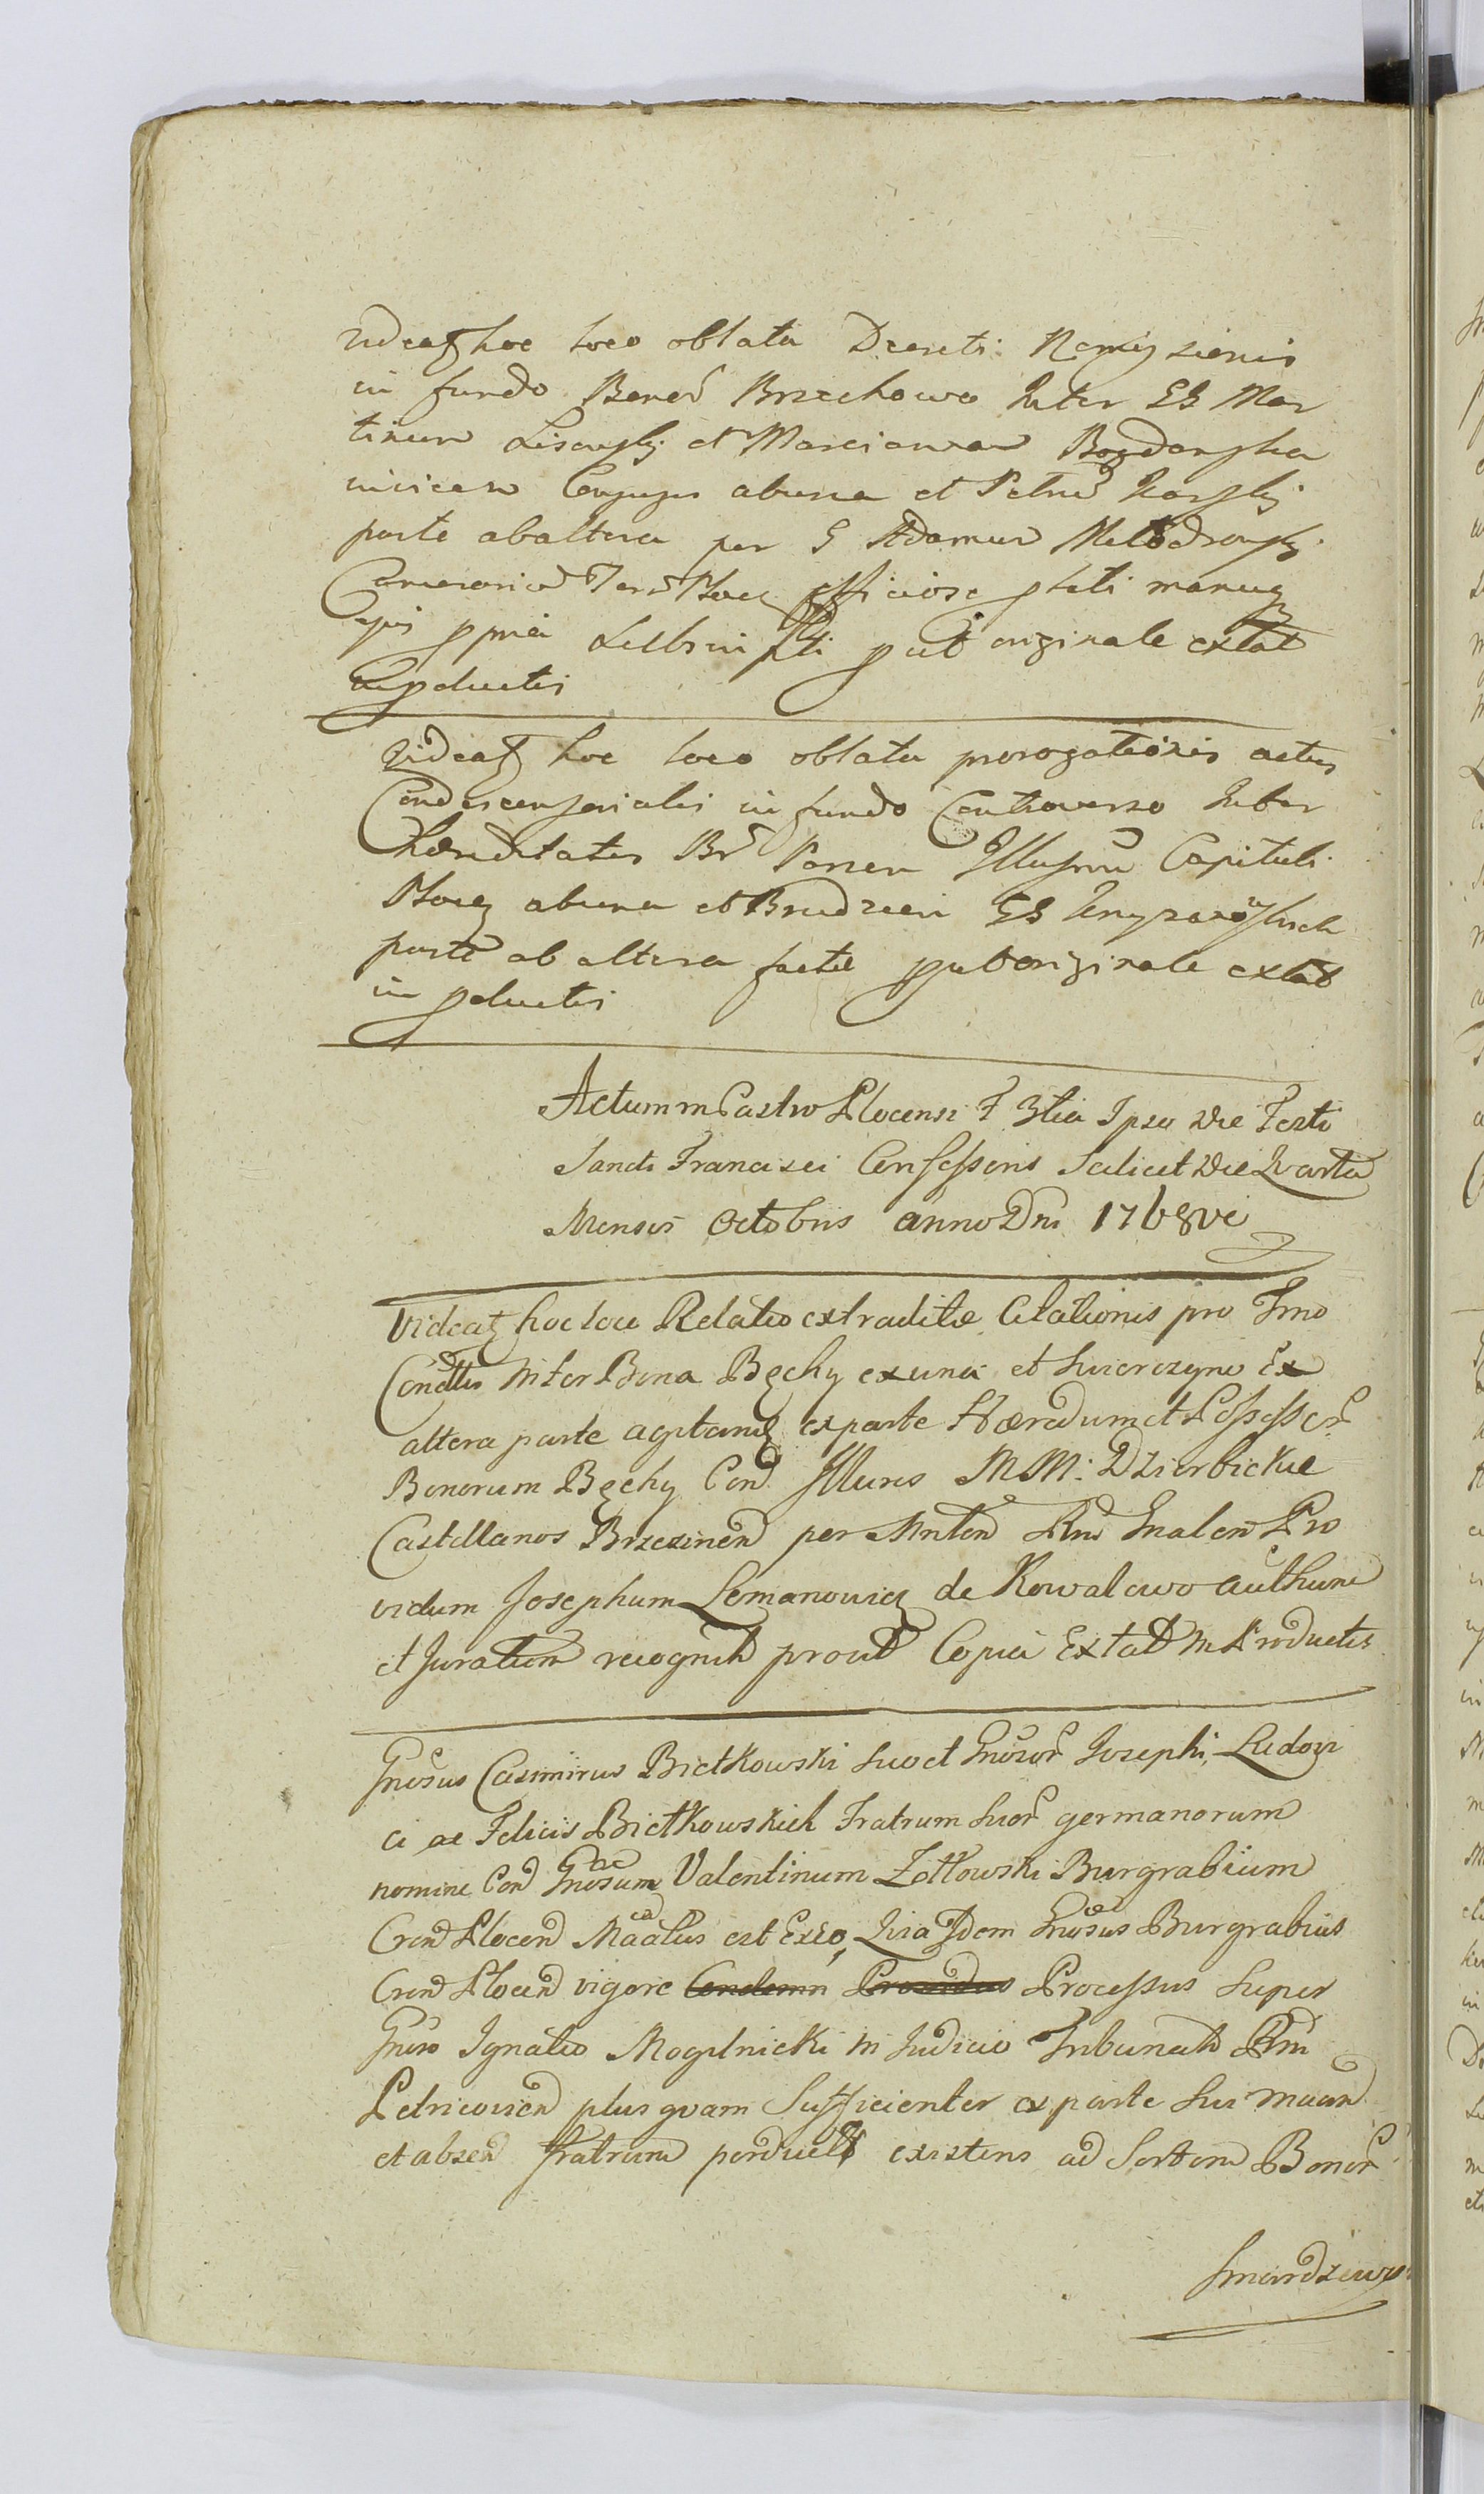 Videatz hoc loco oblata Decreti Remissionis
in fundo Bonor Brzechowo Inter GG Mar
tinum et Mariannam Bogdanska
invicem Conjuges ab una et Petrum
parte ab altera per G Adamum
Camerarium Terr Plocz officiose manuq
ejus ppria Subscripti put originale extat
in pductis
Videatz hoc loco oblata prorogationis actus
Condescensorialis in fundo Controverso Inter
Hæreditates Br Parzen Illustrm Capituli
Plocz ab una et Brudzeń GG
parte ab altera factæ put originale extat
in pductis
Actum in Castro Plocensi F 3tia Ipso Die Festi
Sancti Francisci Confessoris Scilicet Die Quarta
Mensis Octobris anno Dni 1768vi
Videatz hoc loco Relatio extraditæ Citationis pro Trno
Condlis inter Bona Bęchy ex una et Swierczyno Ex
altera parte agitandæ ex parte Hæredum et Possessor
Bonorum Bęchy Con Illures MM: Dzierbickie
Castellanos Brzezinen per Mnten Rni Gnalem Pro
vidum Josephum Lemanowicz de Kowalewo authum
et Juratum recognit prout Copia Extat in Productis
Gnosus Casimirus Bietkowski suo et Gnosor Josephi, Ludovi
ci ac Felicis Bietkowskich Fratrum suor germanorum
nomine Con Gnosum Valentinum Żółtowski Burgrabium
Cren Plocen Maalus est Exeo, Quia Idem Gnosus Burgrabius
Cren Plocen vigore Condemn Processus Super
Gnoso Ignatio Mogilnicki in Judicio Tribunali Rni
Petricovien plus quam Sufficienter ex parte sui maan
et absen fratrum existens ad Sortem Bonor
Smardzewo